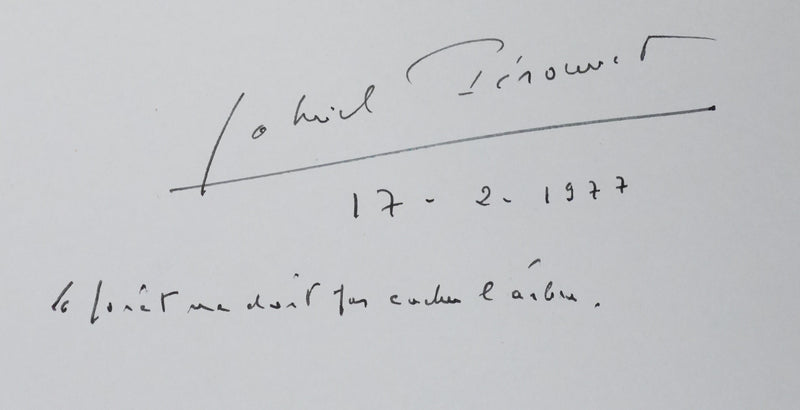 Gabriel Pérouvet
17 - 2 - 1977
la forêt ne doit pas cacher l'arbre.